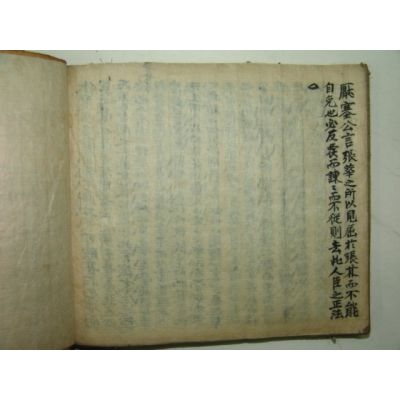 厭塞公言張華之所以見屈於張林而不能
自免也必反喪而諫之而不從則去此人臣之正法